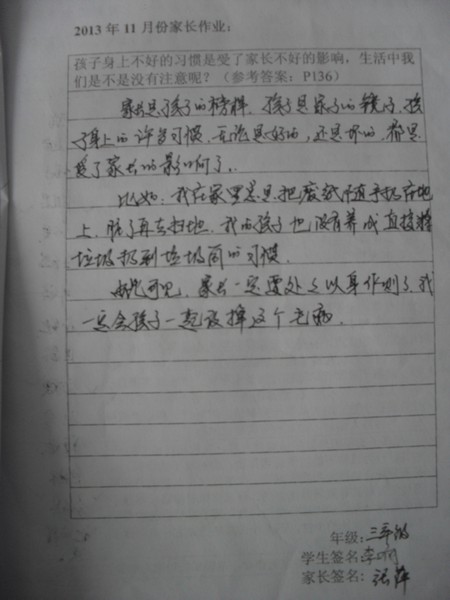 2013 年 11 月份家长作业：
孩子身上不好的习惯是受了家长不好的影响，生活中我
们是不是没有注意呢？（参考答案：P136）
家长是孩子的榜样，孩子是家长的镜子，孩
子身上的许多习惯，无论是好的，还是坏的，都是
受了家长的影响了。
比如，我在家里总是把废纸随手扔在地
上，脏了再去扫地，我的孩子也没有养成直接将
垃圾扔到垃圾筒的习惯。
由此可见，家长一定要处处以身作则了，我
一定会孩子一起改掉这个毛病。
年级：三年级
学生签名：李
家长签名：张萍